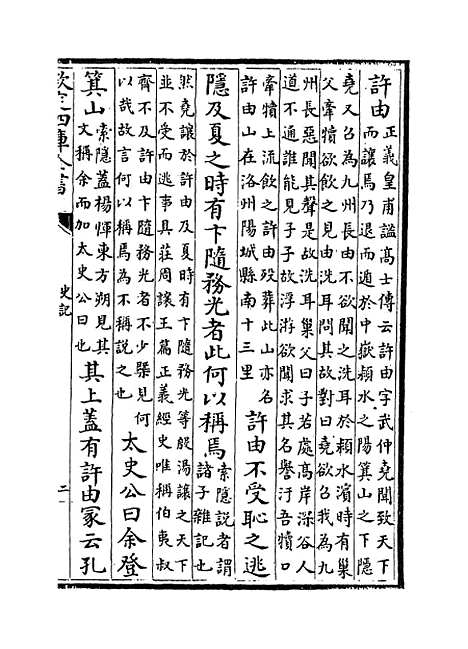 許由正義皇甫謐髙士傳云許由字武仲堯聞致天下
而讓焉乃退而遁於中嶽潁水之陽箕山之下隱
堯又召為九州長由不欲聞之洗耳於潁水濱時有巢
父牽犢欲飲之見由洗耳問其故對曰堯欲召我為九
州長惡聞其聲是故洗耳巢父曰子若處髙岸深谷人
道不通誰能見子子故浮游欲聞求其名譽汙吾犢口
牽犢上流飲之許由歿葬此山亦名
許由山在洛州陽城縣南十三里
許由不受恥之逃
隱及夏之時有卞隨務光者此何以稱焉
索隱說者謂
諸子雜記也
然堯讓於許由及夏時有卞隨務光等殷湯讓之天下
並不受而逃事具莊周讓王篇正義經史唯稱伯夷叔
齊不及許由卞隨務光者不少槩見何
以哉故言何以稱焉為不稱說之也
太史公曰余登
箕山
索隱蓋楊惲東方朔見其
文稱余而加太史公曰也
其上蓋有許由冢云孔
欽定四庫全書
史記